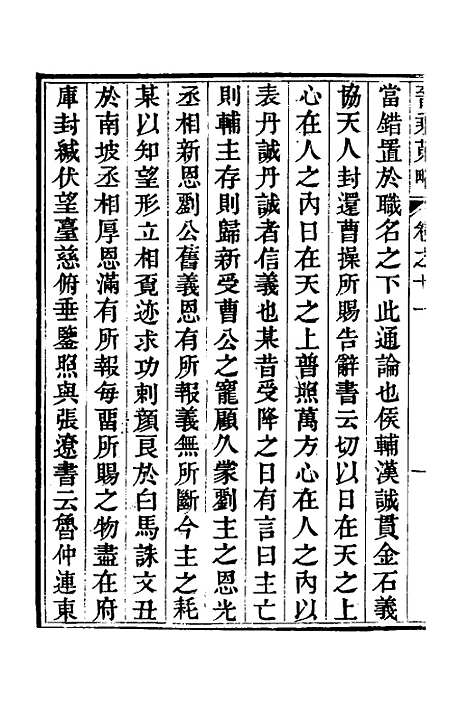 當錯置於職名之下此通論也侯輔漢誠貫金石義
協天人封還曹操所賜告辭書云切以日在天之上
心在人之內日在天之上普照萬方心在人之內以
表丹誠丹誠者信義也某昔受降之日有言曰主亡
則輔主存則歸新受曹公之寵顧久蒙劉主之恩光
丞相新恩劉公舊義恩有所報義無所斷今主之耗
某以知望形立相覔迹求功刺顏良於白馬誅文丑
於南坡丞相厚恩滿有所報每畱所賜之物盡在府
庫封緘伏望臺慈俯垂鑒照與張遼書云魯仲連東